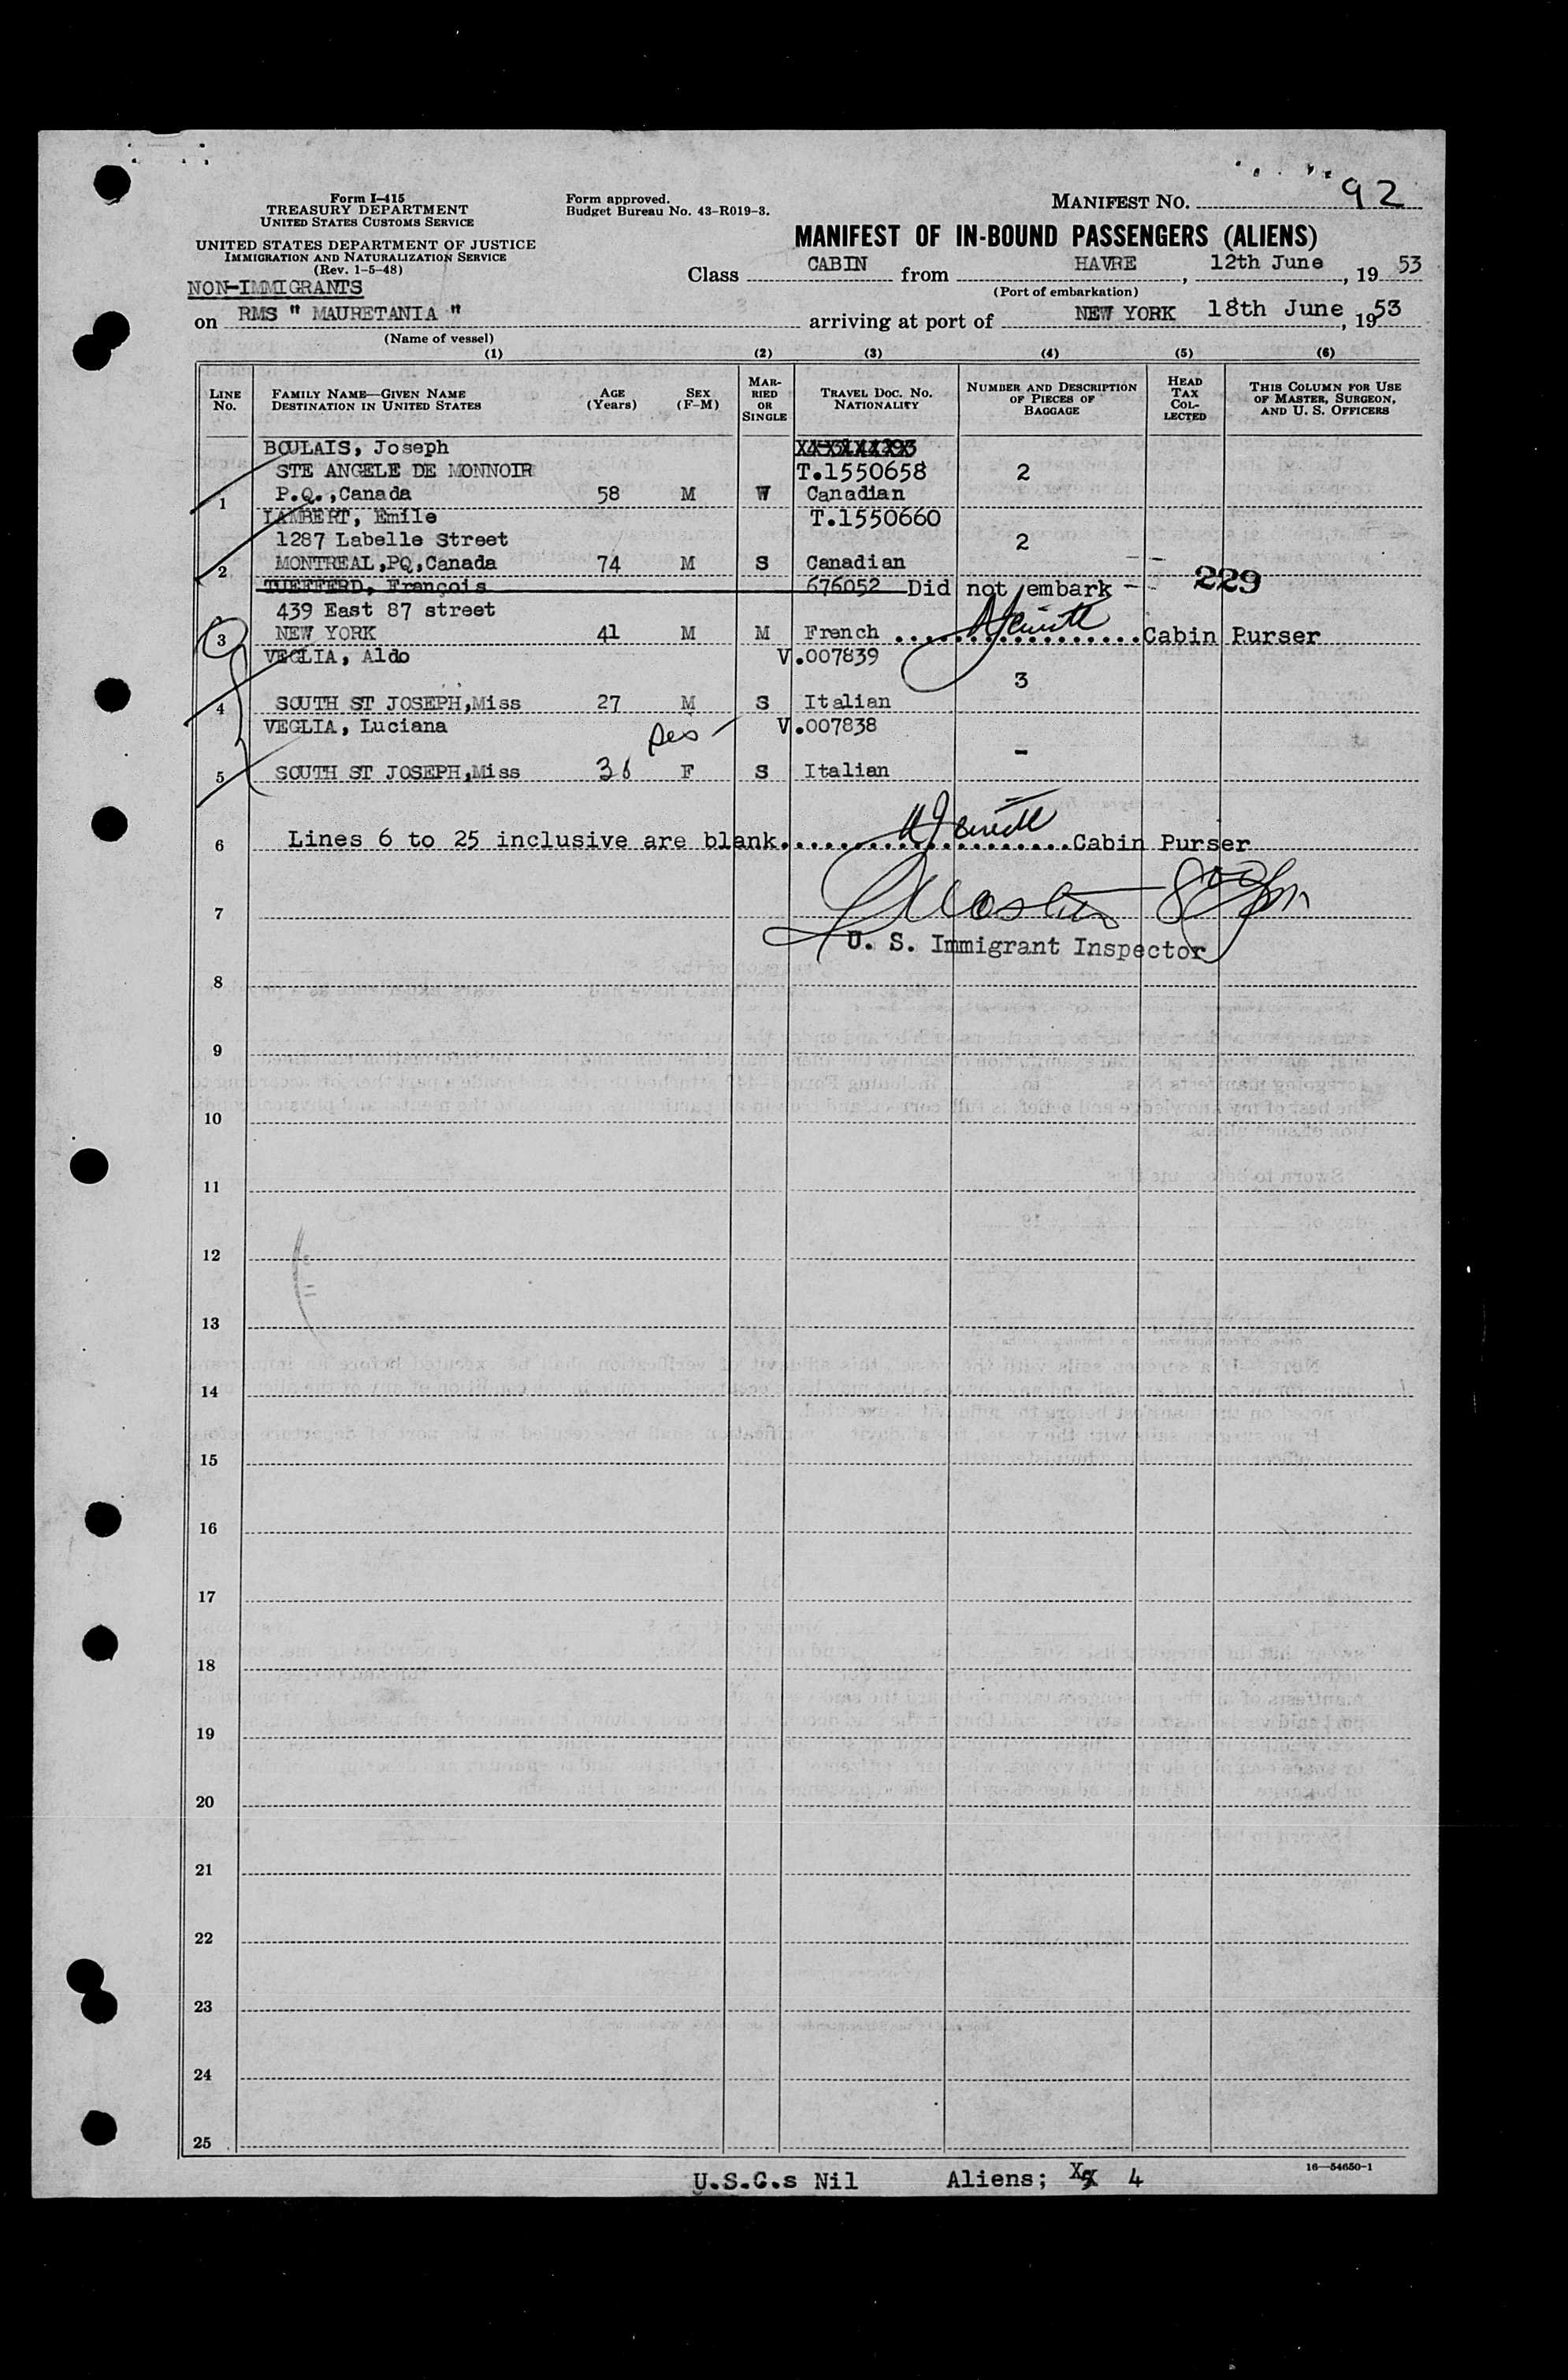 92
Form I-415
TREASURY DEPARTMENT
UNITED STATES CUSTOMS SERVICE
Form approved.
Budget Bureau No. 43-R019-3.
MANIFEST NO.
UNITED STATES DEPARTMENT OF JUSTICE
IMMIGRATION AND NATURALIZATION SERVICE
(Rev. 1-5-48)
MANIFEST OF IN-BOUND PASSENGERS (ALIENS)
NON-IMMIGRANTS
Class CABIN from HAVRE, 12th June, 19 53
(Port of embarkation)
on RMS " MAURETANIA " arriving at port of NEW YORK 18th June, 1953
(Name of vessel)
(1) (2) (3) (4) (5) (6)
LINE No.
FAMILY NAME—GIVEN NAME
DESTINATION IN UNITED STATES
AGE (Years)
SEX (F-M)
MARRIED OR SINGLE
TRAVEL DOC. NO. NATIONALITY
NUMBER AND DESCRIPTION OF PIECES OF BAGGAGE
HEAD TAX COLLECTED
THIS COLUMN FOR USE OF MASTER, SURGEON, AND U. S. OFFICERS
BOULAIS, Joseph
STE ANGELE DE MONNOIR T.1550658 2
1 P.Q.,Canada 58 M W Canadian
LAMBERT, Emile T.1550660
1287 Labelle Street 2
2 MONTREAL,PQ,Canada 74 M S Canadian
TUEFFERD, François 676052 Did not embark - 229
439 East 87 street
3 NEW YORK 41 M M French Cabin Purser
VEGLIA, Aldo V.007839
3
4 SOUTH ST JOSEPH,Miss 27 M S Italian
VEGLIA, Luciana V.007838
-
5 SOUTH ST JOSEPH,Miss F S Italian
6 Lines 6 to 25 inclusive are blank. Cabin Purser
7
U. S. Immigrant Inspector
8
9
10
11
12
13
14
15
16
17
18
19
20
21
22
23
24
25
16—54650-1
U.S.C.s Nil Aliens; 4